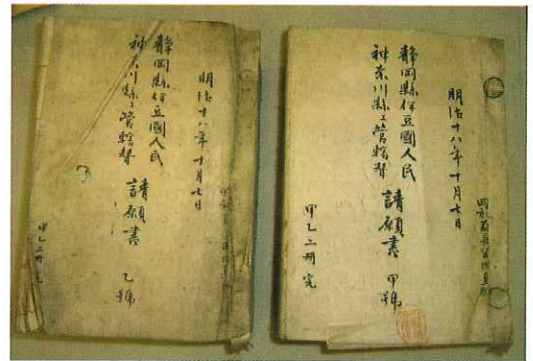 明治十八年十月七日
静岡縣伊豆國人民
神奈川縣ヱ管轄替
請願書 甲號
甲乙二冊完
明治十八年十月七日
静岡縣伊豆國人民
神奈川縣ヱ管轄替
請願書 乙號
甲乙二冊完